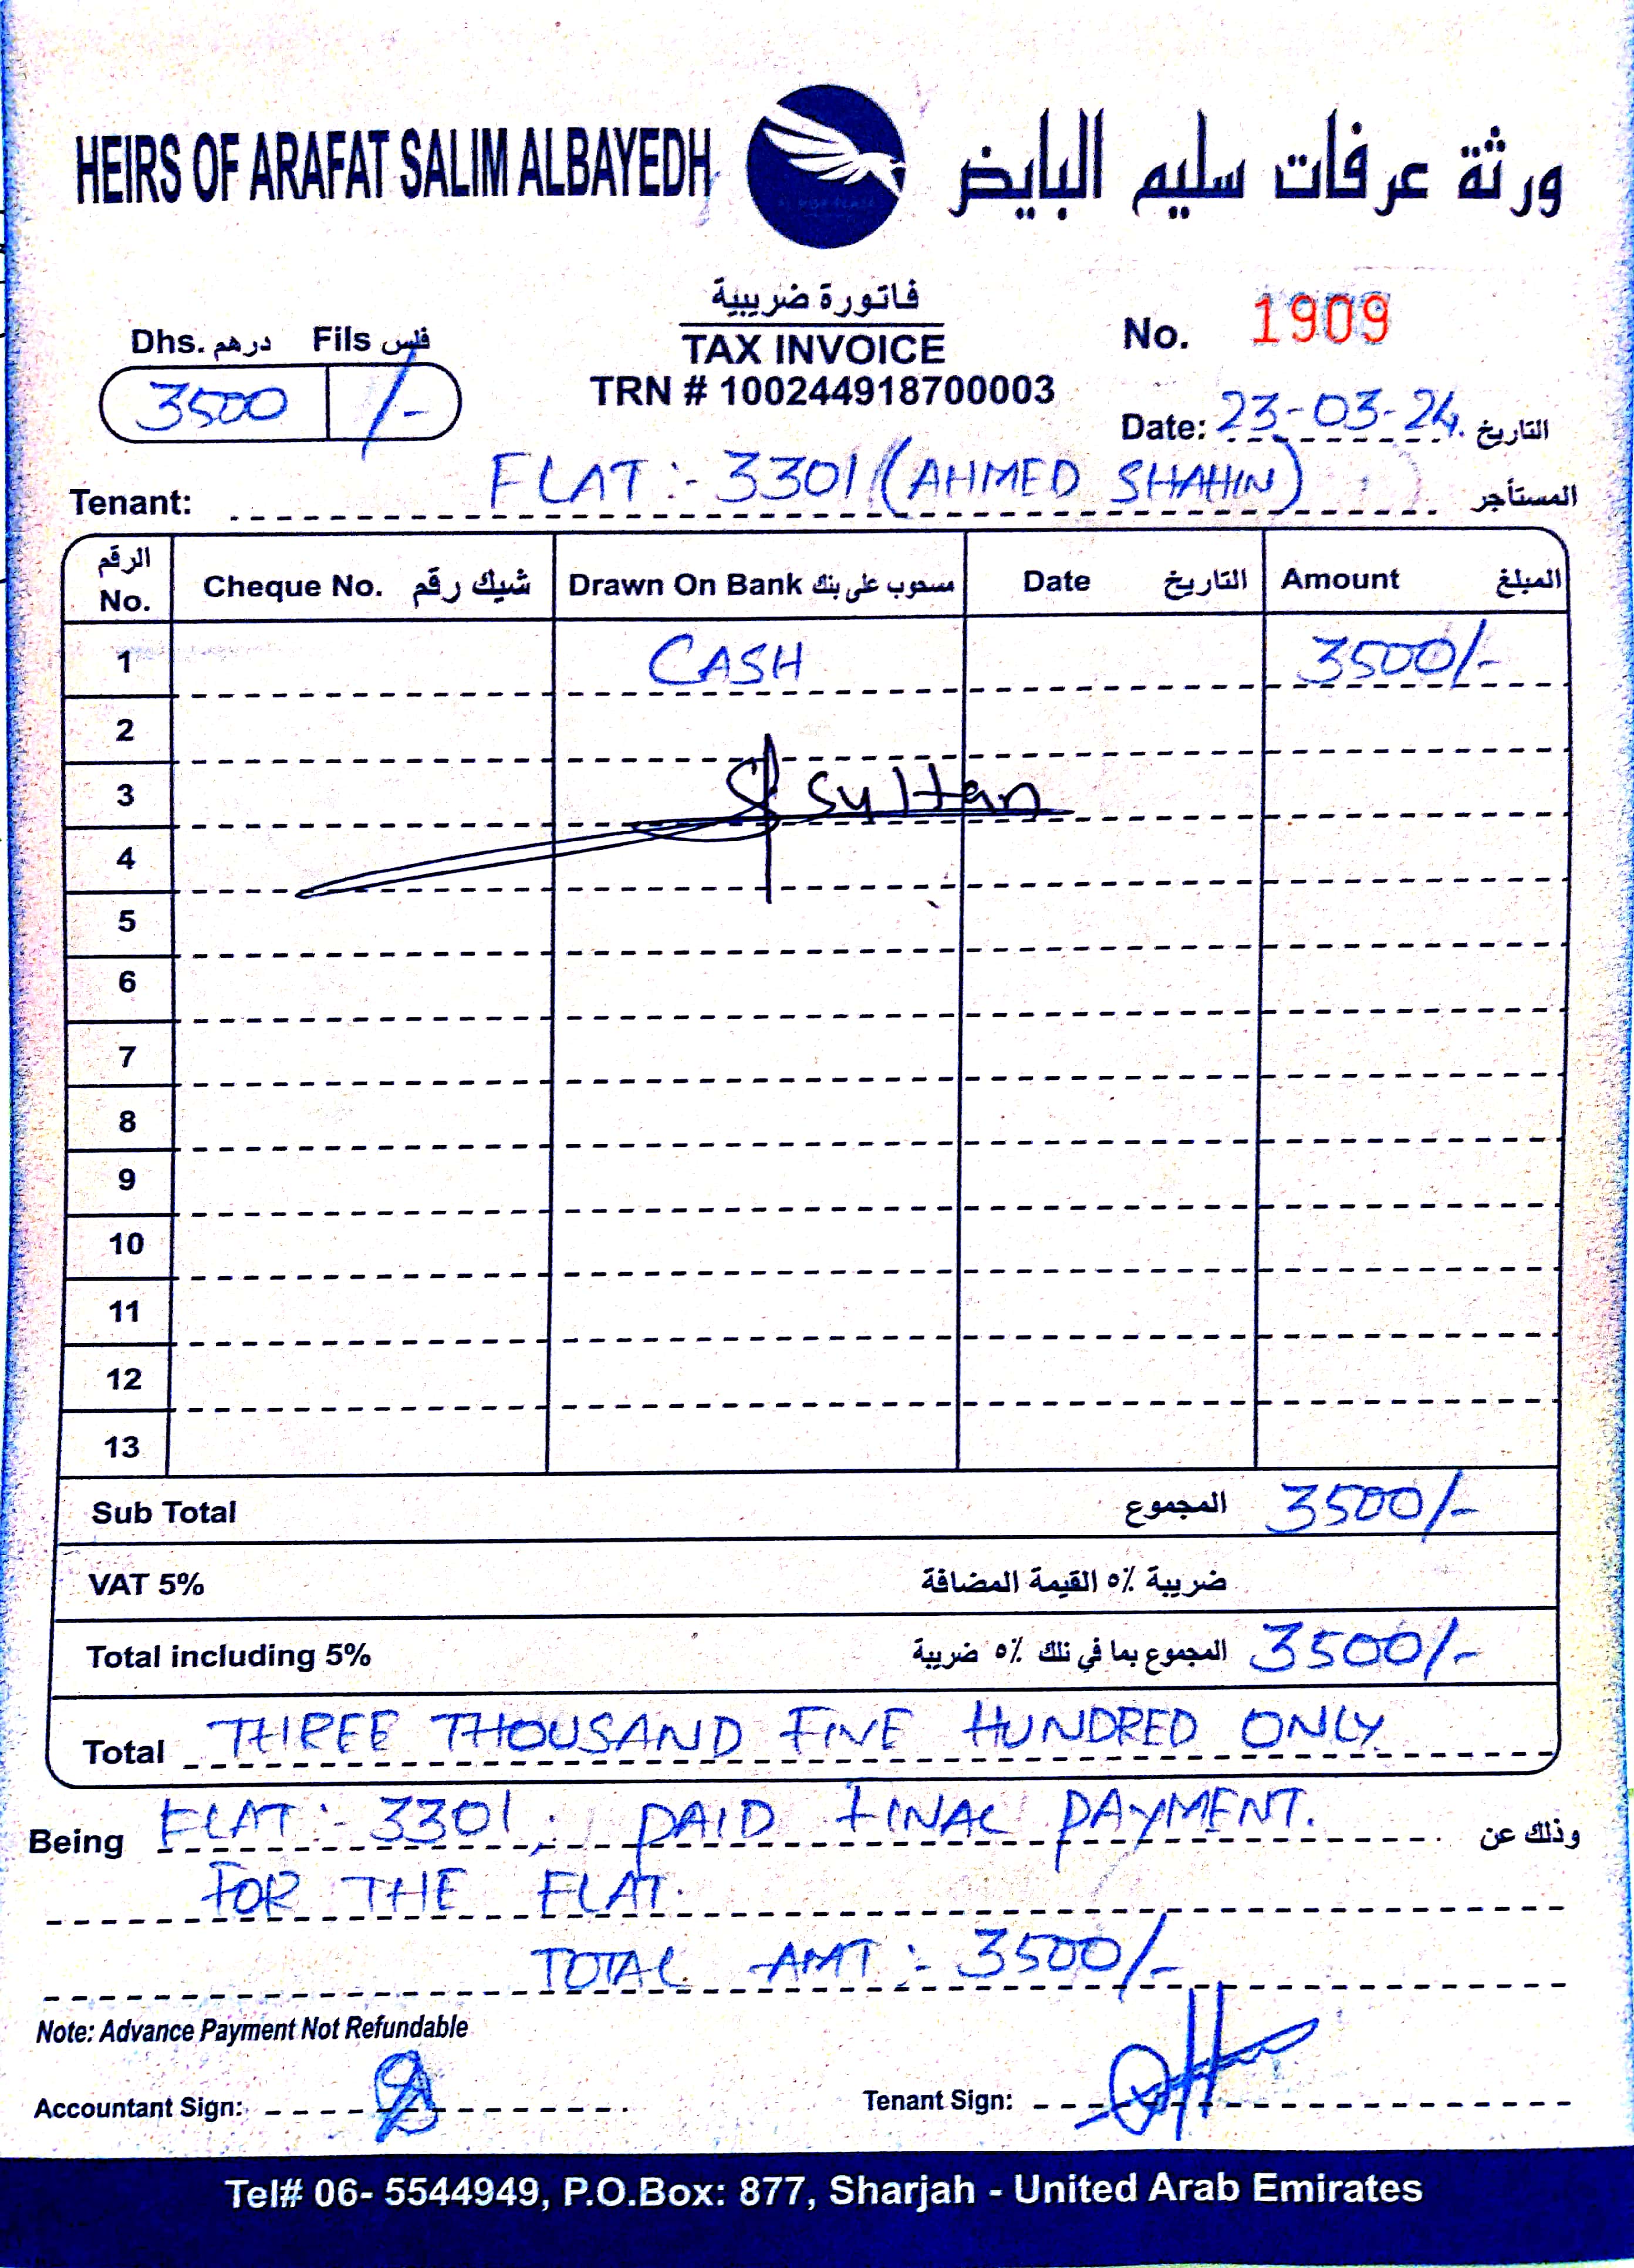 HEIRS OF ARAFAT SALIM ALBAYEDH ورثة عرفات سليم البايض
فاتورة ضريبية
TAX INVOICE
TRN # 100244918700003
Dhs. درهم Fils فلس
3500 /-
No. 1909
Date: 23-03-24. التاريخ
Tenant: FLAT :- 3301 (AHMED SHAHIN) المستأجر
الرقم No. Cheque No. شيك رقم Drawn On Bank مسحوب على بنك Date التاريخ Amount المبلغ
1 CASH 3500/-
2
3 Sultan
4
5
6
7
8
9
10
11
12
13
Sub Total المجموع 3500/-
VAT 5% ضريبة ٥٪ القيمة المضافة
Total including 5% المجموع بما في ذلك ٥٪ ضريبة 3500/-
Total THREE THOUSAND FIVE HUNDRED ONLY
Being FLAT :- 3301, PAID FINAL PAYMENT. وذلك عن
FOR THE FLAT.
TOTAL AMT :- 3500/-
Note: Advance Payment Not Refundable
Accountant Sign: Tenant Sign:
Tel# 06- 5544949, P.O.Box: 877, Sharjah - United Arab Emirates